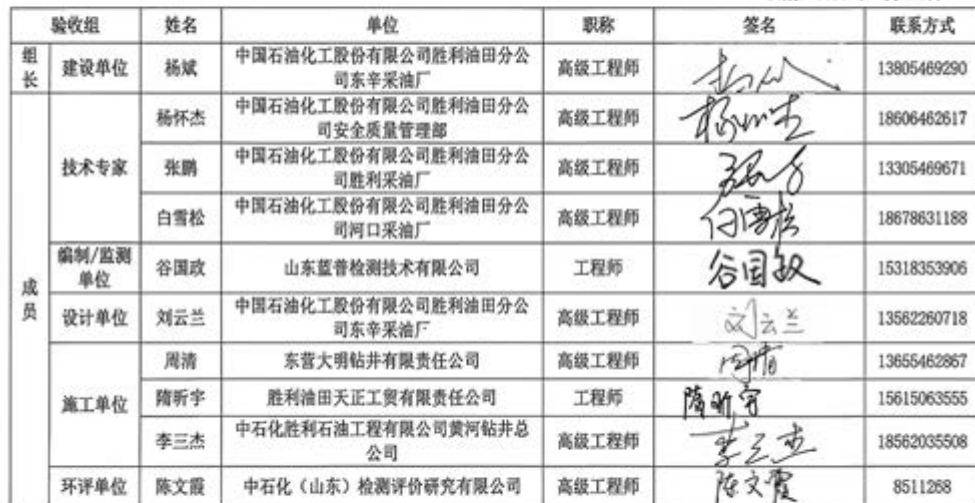 验收组 姓名 单位 职称 签名 联系方式
组长 建设单位 杨斌 中国石油化工股份有限公司胜利油田分公司东辛采油厂 高级工程师 13805469290
成员 技术专家 杨怀杰 中国石油化工股份有限公司胜利油田分公司安全质量管理部 高级工程师 杨怀杰 18606462617
张鹏 中国石油化工股份有限公司胜利油田分公司胜利采油厂 高级工程师 13305469671
白雪松 中国石油化工股份有限公司胜利油田分公司河口采油厂 高级工程师 白雪松 18678631188
编制/监测单位 谷国政 山东蓝普检测技术有限公司 工程师 谷国政 15318353906
设计单位 刘云兰 中国石油化工股份有限公司胜利油田分公司东辛采油厂 高级工程师 刘云兰 13562260718
施工单位 周清 东营大明钻井有限责任公司 高级工程师 周清 13655462867
隋昕宇 胜利油田天正工贸有限责任公司 工程师 隋昕宇 15615063555
李三杰 中石化胜利石油工程有限公司黄河钻井总公司 高级工程师 李三杰 18562035508
环评单位 陈文霞 中石化（山东）检测评价研究有限公司 高级工程师 陈文霞 8511268